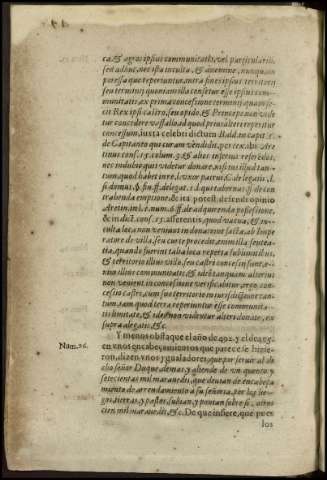 ca, & agros ipsius communitatis, vel particularis,
sed adhuc, nec ipsa inculta, & à nemine, nunquam
possessa que reperiuntur, intra fines ipsius territorij
seu termini quoniam illa censetur esse ipsius com-
munitatis ex prima concessione termini quam fe-
cit Rex ipsi castro, seu opido, & Princeps non vide
tur concedere vassallo ad quod prius alteri reperitur
concessum, iuxta celebre dictum Bald. in capit. 1.
de Capitanio qui curam vendidit, per tex. ibi Are
tinus conf. 15. colum. 3. & alios inferius referẽdos,
nec induldo quis videtur donare, nisi tus illud tan-
tum quod habet iure. l. vxor patrui C. de legatis. l.
si domus, § fin. ff. de legat. 1. l. qui tabernas ff. de con
trahenda emptione, & ita potest defendi opinio
Aretin. in l. 1. num. 6. ff. de adquirenda possessione,
& in dict. conf. 15. asserentis, quod vacua, & in-
culta loca non veniunt in donatione facta, ab Impe
ratore de villa, seu curte procedit enim illa senten-
tia, quando fuerint talia loca reperta sub finibus,
& territorio illius villa, seu castri concessi in feudũ, o
nius illius communitatis & ideò tanquam alterius
non veniunt in concessione verificatur, ergo con-
cessio castri, cum suo territorio in iurisdictione tan-
tum, tam quod terra reperiuntur esse communita-
tis limitate, & ideò non videntur alteri donate, ex
supra alegatis, &c.
Y menos obsta que el año de 492. y el de 493.
Num. 26. en vnos encabeçamientos que parece se hizie-
ron, dizen vnos ygualadores, que por seruir al di-
cho señor Duque de mas, y allende de vn quento y
setecientas mil marauedis, que deuian de encabeça
miento de arrendamiento a su señoria, por los ter-
gos, tierras, y pastos, subian, y pontan sobre si, otros
cien mil marauedis, &c. De que infiere, que pues
los